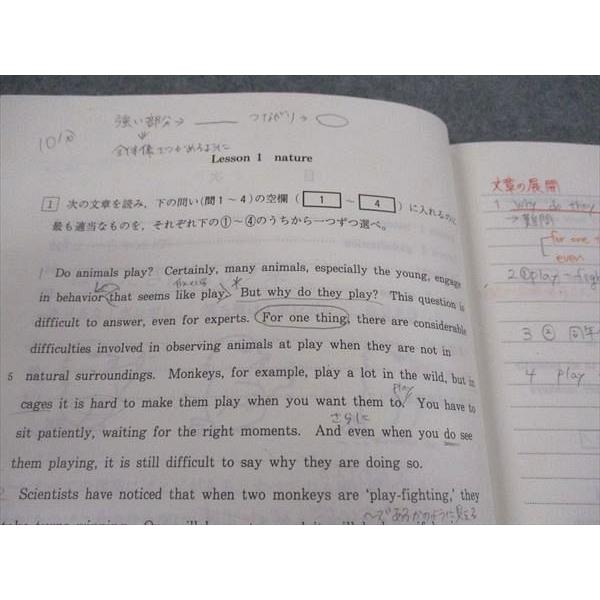 強い部分→ ―― つながり→
10分
全体像をつかめるように
Lesson 1 nature
1 次の文章を読み、下の問い(問1～4)の空欄( 1 ～ 4 )に入れるのに
最も適当なものを、それぞれ下の①～④のうちから一つずつ選べ。
1 Do animals play? Certainly, many animals, especially the young, engage
in behavior that seems like play. But why do they play? This question is
difficult to answer, even for experts. For one thing, there are considerable
difficulties involved in observing animals at play when they are not in
5 natural surroundings. Monkeys, for example, play a lot in the wild, but in
play
cages it is hard to make them play when you want them to. You have to
さらに
sit patiently, waiting for the right moments. And even when you do see
them playing, it is still difficult to say why they are doing so.
2 Scientists have noticed that when two monkeys are 'play-fighting,' they
～であるかのように見える
文章の展開
1 Why do they
→難問
for one
even
2 ① play - figh
3 ②
4 play